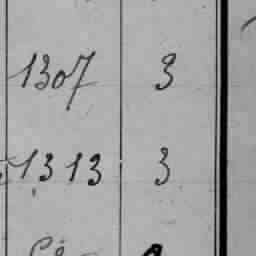 1307 3
1313 3